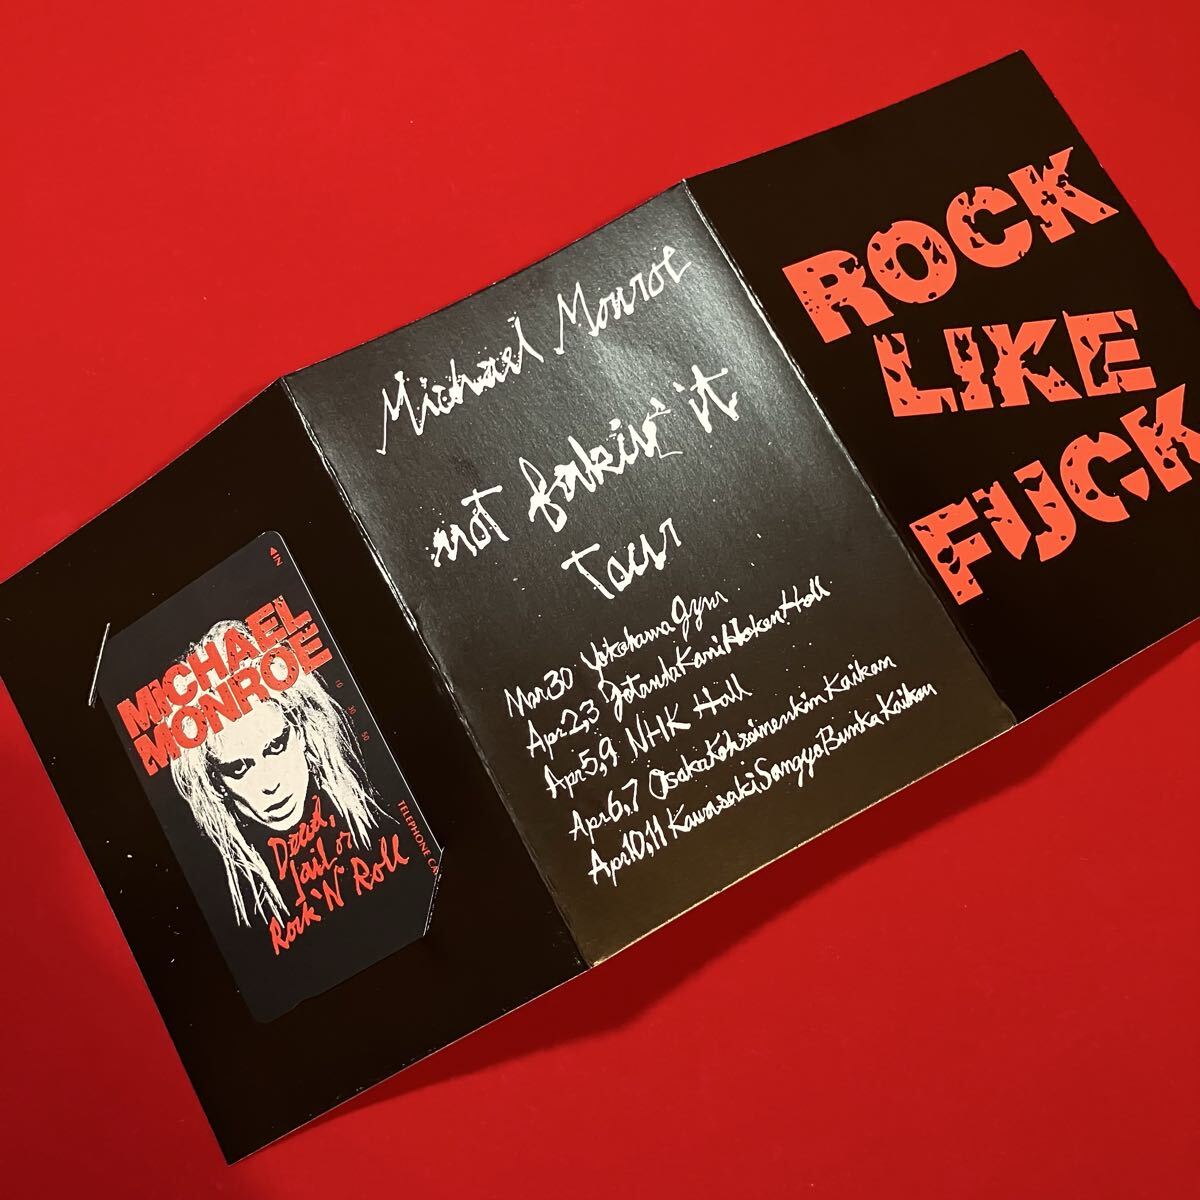 ◀IN
MICHAEL
MONROE
10 30 50
Dead,
Jail or
Rock 'N' Roll
TELEPHONE CA
Michael Monroe
not fakin' it
Tour
Mar.30 Yokohama Gym
Apr 2,3 Gotanda Kani Hoken Hall
Apr 5,9 NHK Hall
Apr 6,7 Osaka Kohseinenkin Kaikan
Apr 10,11 Kawasaki Sangyo Bunka Kaikan
ROCK
LIKE
FUCK